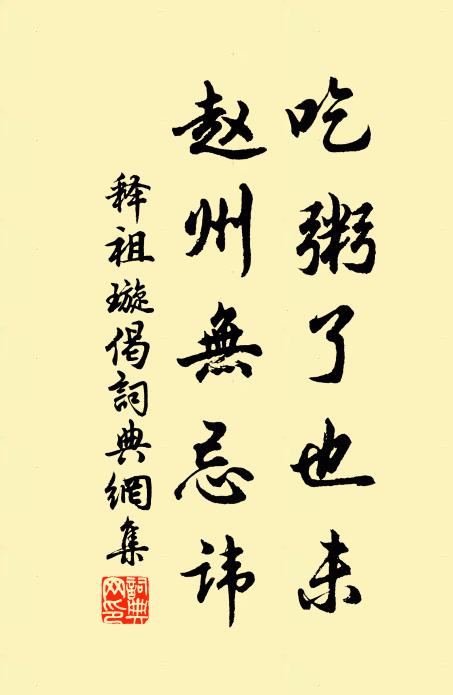 吃粥了也未
赵州無忌讳
释祖璇偈詞典網集
詞典网印